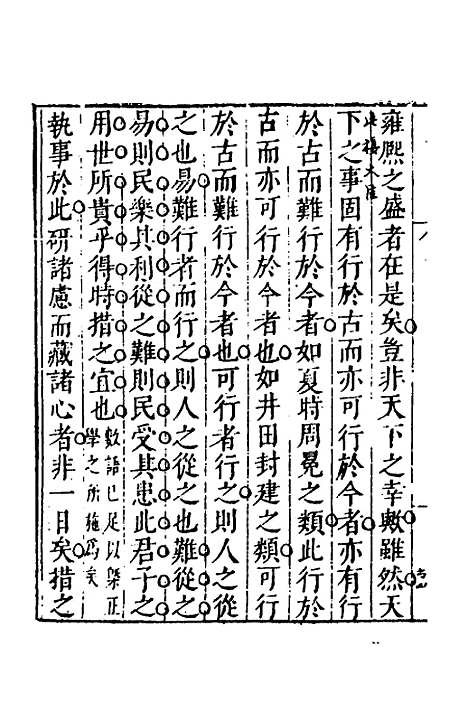 雍熈之盛者在是矣豈非天下之幸歟雖然天
下之事固有行於古而亦可行於今者亦有行
於古而難行於今者如夏時周冕之類此行於
古而亦可行於今者也如井田封建之類可行
於古而難行於今者也可行者行之則人之從
之也易難行者而行之則人之從之也難從之
易則民樂其利從之難則民受其患此君子之
用世所貴乎得時措之宜也
數語已足以槩正
學之所施爲矣
執事於此研諸慮而藏諸心者非一日矣措之